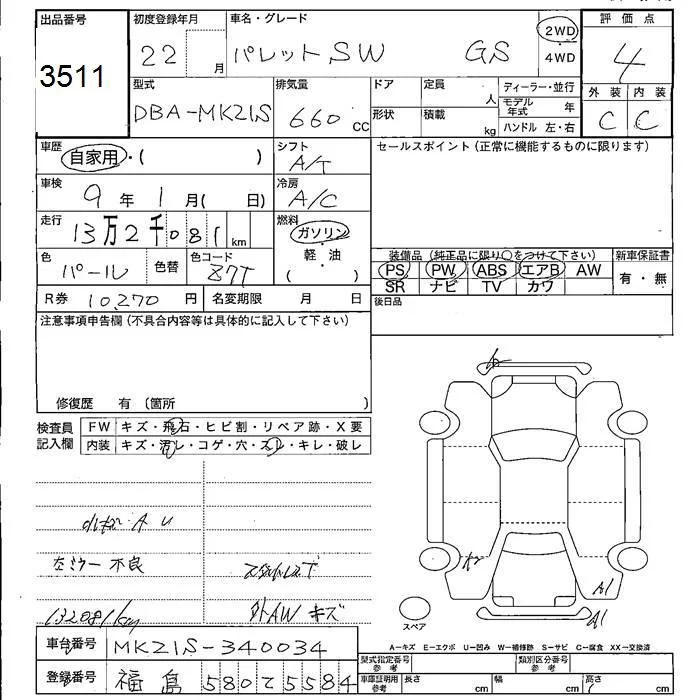 出品番号 初度登録年月 車名・グレード 評価点
3511 22 月 パレットSW GS 2WD・4WD 4
型式 排気量 ドア 定員 人 ディーラー・並行 外装 内装
DBA-MK21S 660 cc 形状 積載 kg モデル年式 年 C C
ハンドル 左・右
車歴 自家用・( ) シフト A/T セールスポイント(正常に機能するものに限ります)
車検 9年1月( 日) 冷房 A/C
走行 13万2千081km 燃料 ガソリン・軽油 ( )
色 パール 色替 色コード Z7T
装備品(純正品に限り○をつけて下さい) 新車保証書
PS PW ABS エアB AW 有・無
SR ナビ TV カワ
R券 10,270円 名変期限 月 日 後日品
注意事項申告欄(不具合内容等は具体的に記入して下さい)
修復歴 有(箇所 )
検査員記入欄 FW キズ・飛石・ヒビ割・リペア跡・X要
内装 キズ・汚レ・コゲ・穴・スレ・キレ・破レ
小キズ A U
左ミラー不良 スタットレス下
132081km 外AWキズ
A2
A1
A1
スペア
A=キズ E=エクボ U=凹み W=補修跡 S=サビ C=腐食 XX=交換済
車台番号 MK21S-340034
登録番号 福島580て5584
型式指定番号 参考 類別区分番号 参考
車庫証明用 参考 長さ cm 幅 cm 高さ cm